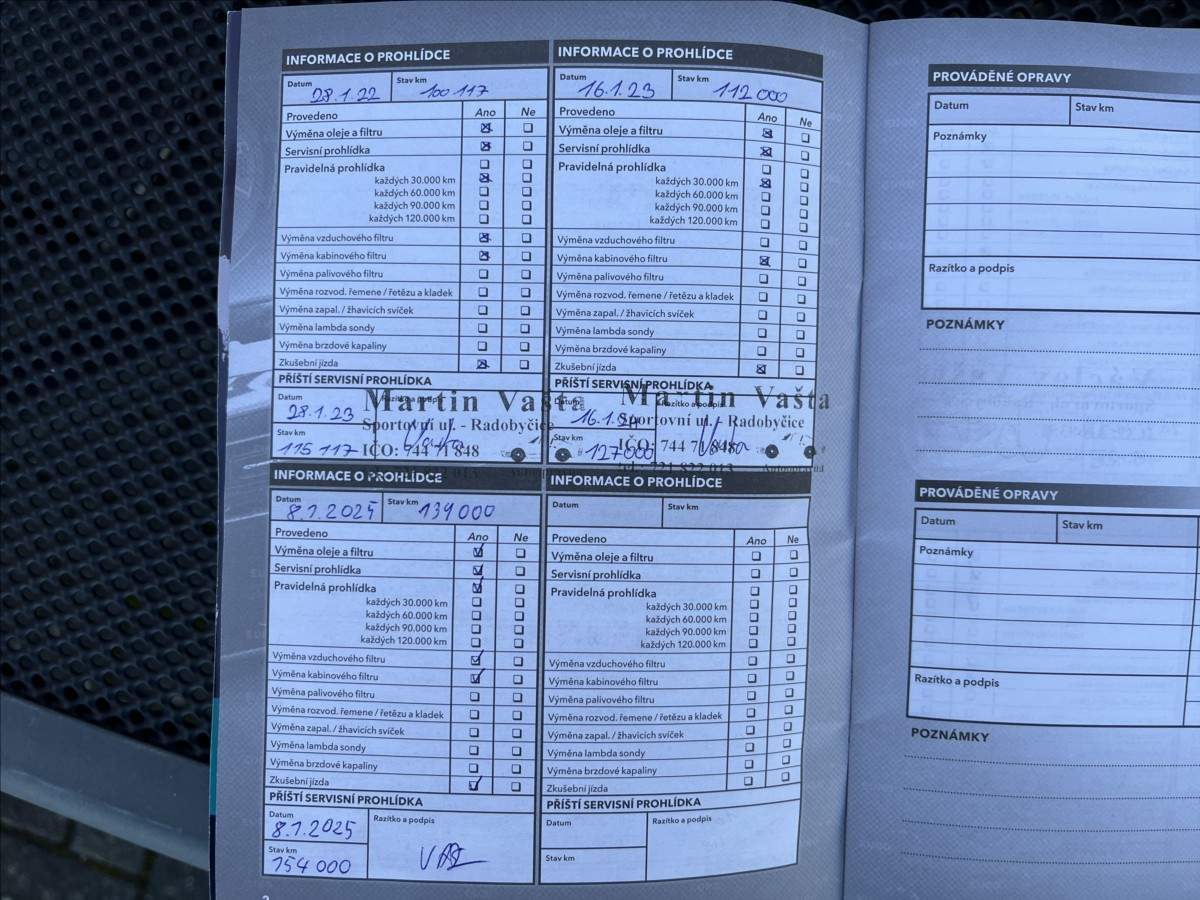 INFORMACE O PROHLÍDCE
Datum 28.1.22 Stav km 100 117
Provedeno Ano Ne
Výměna oleje a filtru
Servisní prohlídka
Pravidelná prohlídka
každých 30.000 km
každých 60.000 km
každých 90.000 km
každých 120.000 km
Výměna vzduchového filtru
Výměna kabinového filtru
Výměna palivového filtru
Výměna rozvod. řemene / řetězu a kladek
Výměna zapal. / žhavicích svíček
Výměna lambda sondy
Výměna brzdové kapaliny
Zkušební jízda
PŘÍŠTÍ SERVISNÍ PROHLÍDKA
Datum Razítko a podpis
28.1.23
Stav km
115 117
Martin Vašta
Sportovní ul. - Radobyčice
IČO: 744 71 848
INFORMACE O PROHLÍDCE
Datum 16.1.23 Stav km 112 000
Provedeno Ano Ne
Výměna oleje a filtru
Servisní prohlídka
Pravidelná prohlídka
každých 30.000 km
každých 60.000 km
každých 90.000 km
každých 120.000 km
Výměna vzduchového filtru
Výměna kabinového filtru
Výměna palivového filtru
Výměna rozvod. řemene / řetězu a kladek
Výměna zapal. / žhavicích svíček
Výměna lambda sondy
Výměna brzdové kapaliny
Zkušební jízda
PŘÍŠTÍ SERVISNÍ PROHLÍDKA
Datum Razítko a podpis
16.1.24
Stav km
127 000
Martin Vašta
Sportovní ul. - Radobyčice
IČO: 744 71 848
INFORMACE O PROHLÍDCE
Datum 8.1.2025 Stav km 139 000
Provedeno Ano Ne
Výměna oleje a filtru
Servisní prohlídka
Pravidelná prohlídka
každých 30.000 km
každých 60.000 km
každých 90.000 km
každých 120.000 km
Výměna vzduchového filtru
Výměna kabinového filtru
Výměna palivového filtru
Výměna rozvod. řemene / řetězu a kladek
Výměna zapal. / žhavicích svíček
Výměna lambda sondy
Výměna brzdové kapaliny
Zkušební jízda
PŘÍŠTÍ SERVISNÍ PROHLÍDKA
Datum Razítko a podpis
8.1.2025
Stav km
154 000
INFORMACE O PROHLÍDCE
Datum Stav km
Provedeno Ano Ne
Výměna oleje a filtru
Servisní prohlídka
Pravidelná prohlídka
každých 30.000 km
každých 60.000 km
každých 90.000 km
každých 120.000 km
Výměna vzduchového filtru
Výměna kabinového filtru
Výměna palivového filtru
Výměna rozvod. řemene / řetězu a kladek
Výměna zapal. / žhavicích svíček
Výměna lambda sondy
Výměna brzdové kapaliny
Zkušební jízda
PŘÍŠTÍ SERVISNÍ PROHLÍDKA
Datum Razítko a podpis
Stav km
PROVÁDĚNÉ OPRAVY
Datum Stav km
Poznámky
Razítko a podpis
POZNÁMKY
PROVÁDĚNÉ OPRAVY
Datum Stav km
Poznámky
Razítko a podpis
POZNÁMKY